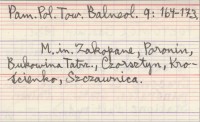 Pam. Pol. Tow. Balneol. 9: 164-173
M. in. Zakopane, Poronin,
Bukowina Tatrz., Czorsztyn, Kro-
ścienko, Szczawnica.